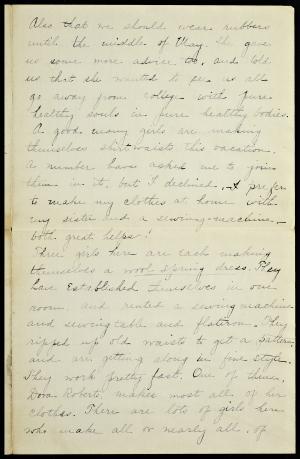 Also that we should wear rubbers
until the middle of May. She gave
us some more advice too, and told
us that she wanted to see us all
go away from college with pure
healthy souls in pure healthy bodies.
A good many girls are making
themselves shirt-waists this vacation.
A number have asked me to join
them in it, but I declined. I prefer
to make my clothes at home with
my sister and a sewing-machine, -
both great helps!
Three girls here are each making
themselves a wool spring dress. They
have established themselves in one
room, and rented a sewing machine
and sewing table and flatiron. They
ripped up old waists to get a pattern
and are getting along in fine style.
They work pretty fast. One of them,
Dora Roberts, makes most all of her
clothes. There are lots of girls here
who make all or nearly all, of